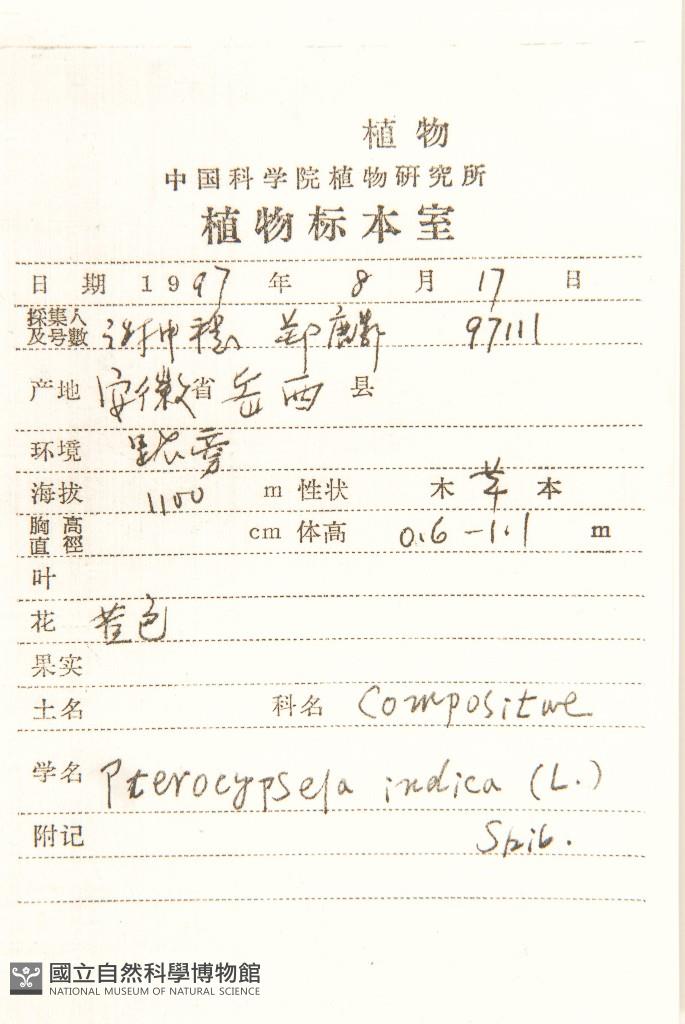 植物
中国科学院植物研究所
植物标本室
日期 1997 年 8 月 17 日
採集人及号數 97111
产地 安徽省 岳西 县
环境 旁
海拔 1100 m 性状 木 草 本
胸高直徑 cm 体高 0.6-1.1 m
叶
花 黄色
果实
土名 科名 Compositae
学名 Pterocypsela indica (L.)
附记 Shib.
國立自然科學博物館
NATIONAL MUSEUM OF NATURAL SCIENCE